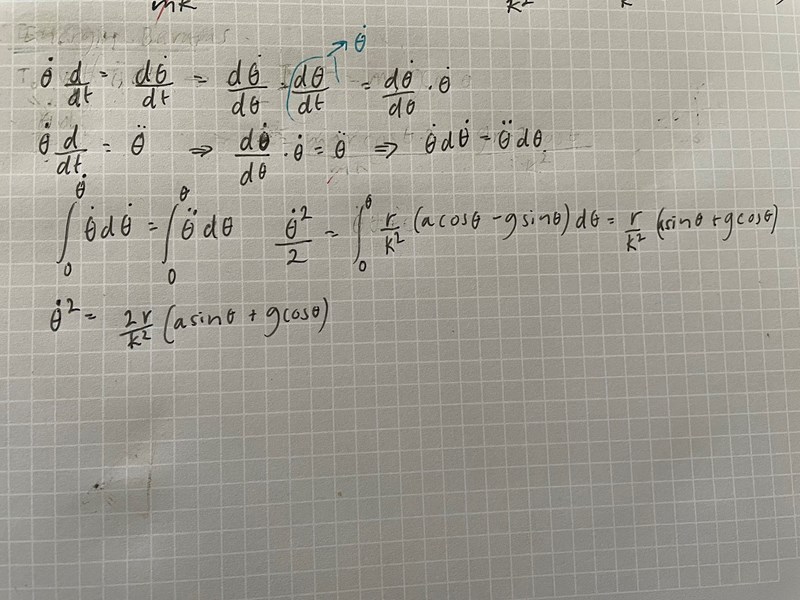 mk k² k
θ̇ d/dt = dθ̇/dt = dθ̇/dθ · dθ/dt → θ̇ = dθ̇/dθ · θ̇
θ̇ d/dt = θ̈ ⇒ dθ̇/dθ · θ̇ = θ̈ ⇒ θ̇ dθ̇ = θ̈ dθ
∫₀^θ̇ θ̇ dθ̇ = ∫₀^θ θ̈ dθ θ̇²/2 = ∫₀^θ r/k² (a cosθ - g sinθ) dθ = r/k² (a sinθ + g cosθ)
θ̇² = 2r/k² (a sinθ + g cosθ)